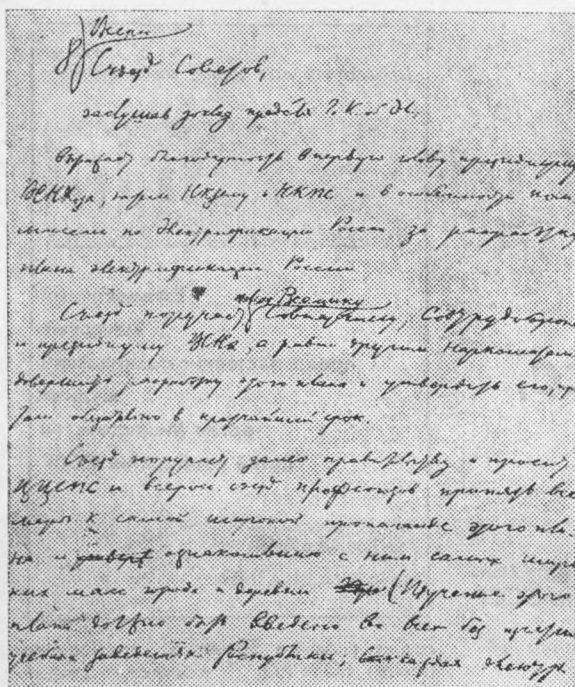 8) Всерос
Съезд Советов,
заслушав доклад предс
выражает благодарность в первую очередь президиуму
ВСНХоза, затем НКзему и НКПС и в особенности ком
миссии по электрификации России за разработку
плана электрификации России
Съезд поручает Совнаркому, Совтрудобороне
и президиуму ВСНХ, а равно другим Наркоматам
довершить разработку этого плана и утвердить его, при
том обязательно в кратчайший срок.
Съезд поручает далее правительству и просит
ВЦСПС и всерос. съезд профсоюзов принять все
меры к самой широкой пропаганде этого пла-
на и ознакомлению с ним самых широ
ких масс города и деревни (Изучение этого
плана должно быть введено во всех без изъятия
учебных заведениях Республики;